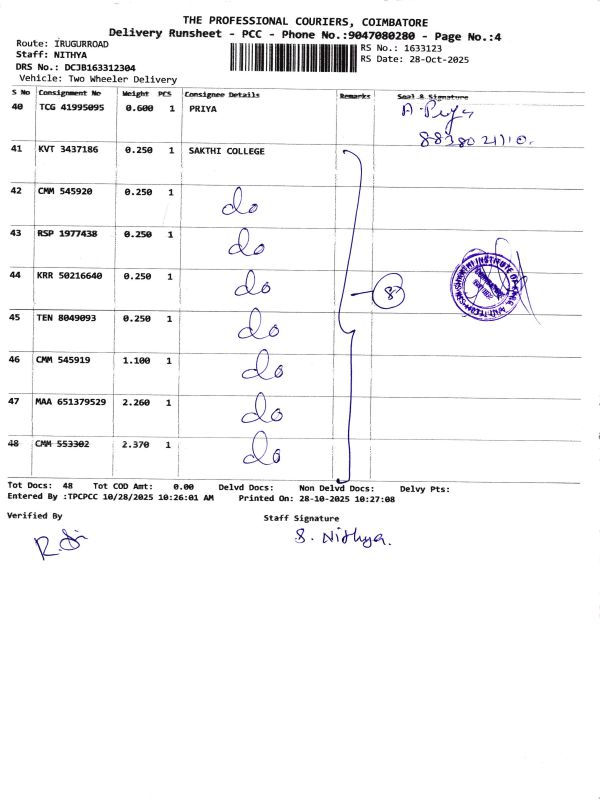 THE PROFESSIONAL COURIERS, COIMBATORE
Delivery Runsheet - PCC - Phone No.:9047080280 - Page No.:4
Route: IRUGURROAD
Staff: NITHYA
DRS No.: DCJB163312304
Vehicle: Two Wheeler Delivery
RS No.: 1633123
RS Date: 28-Oct-2025
S No Consignment No Weight PCS Consignee Details Remarks Seal & Signature
40 TCG 41995095 0.600 1 PRIYA A. Priya
8838021110.
41 KVT 3437186 0.250 1 SAKTHI COLLEGE
42 CMM 545920 0.250 1 do
43 RSP 1977438 0.250 1 do
44 KRR 50216640 0.250 1 do 8
45 TEN 8049093 0.250 1 do
46 CMM 545919 1.100 1 do
47 MAA 651379529 2.260 1 do
48 CMM 553302 2.370 1 do
Tot Docs: 48 Tot COD Amt: 0.00 Delvd Docs: Non Delvd Docs: Delvy Pts:
Entered By :TPCPCC 10/28/2025 10:26:01 AM Printed On: 28-10-2025 10:27:08
Verified By Staff Signature
S. Nithya.